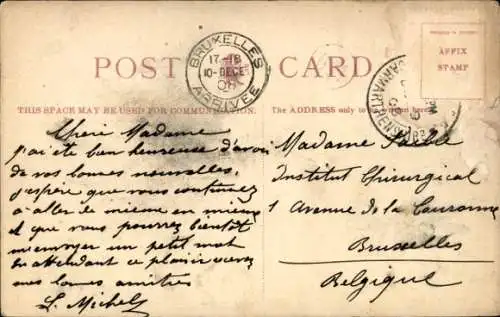 POST CARD
THIS SPACE MAY BE USED FOR COMMUNICATION.
The ADDRESS only to
AFFIX
STAMP
BRUXELLES
17-18
10-DECE
08
ARRIVÉE
CARMARTHEN
Chère Madame
J'ai été bien heureuse d'avoir
de vos bonnes nouvelles.
J'espère que vous continuez
à aller de mieux en mieux
et que vous pourrez bientôt
m'envoyer un petit mot
En attendant ce plaisir recevez
mes bonnes amitiés
L. Michel
Madame
Institut Chirurgical
1 Avenue de la Couronne
Bruxelles
Belgique